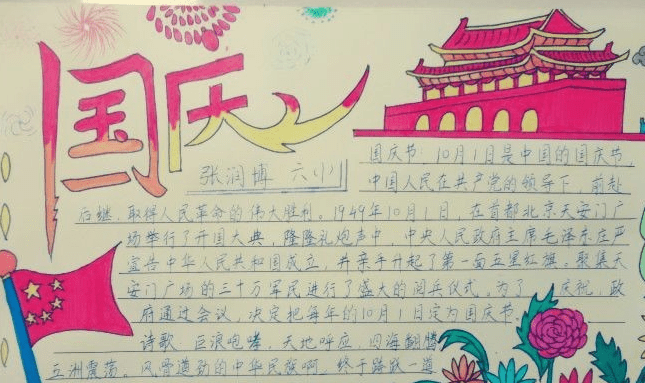 国庆
张润博 六(1)
国庆节:10月1日是中国的国庆节,
中国人民在共产党的领导下,前赴
后继,取得人民革命的伟大胜利。1949年10月1日,在首都北京天安门广
场举行了开国大典,隆隆礼炮声中,中央人民政府主席毛泽东庄严
宣告中华人民共和国成立,并亲手升起了第一面五星红旗。聚集天
安门广场的三十万军民进行了盛大的阅兵仪式。为了 庆祝,政
府通过会议,决定把每年的10月1日定为国庆节。
诗歌:巨浪咆哮,天地呼应,四海翻腾
五洲震荡。风骨遒劲的中华民族啊,终于踏跃一道